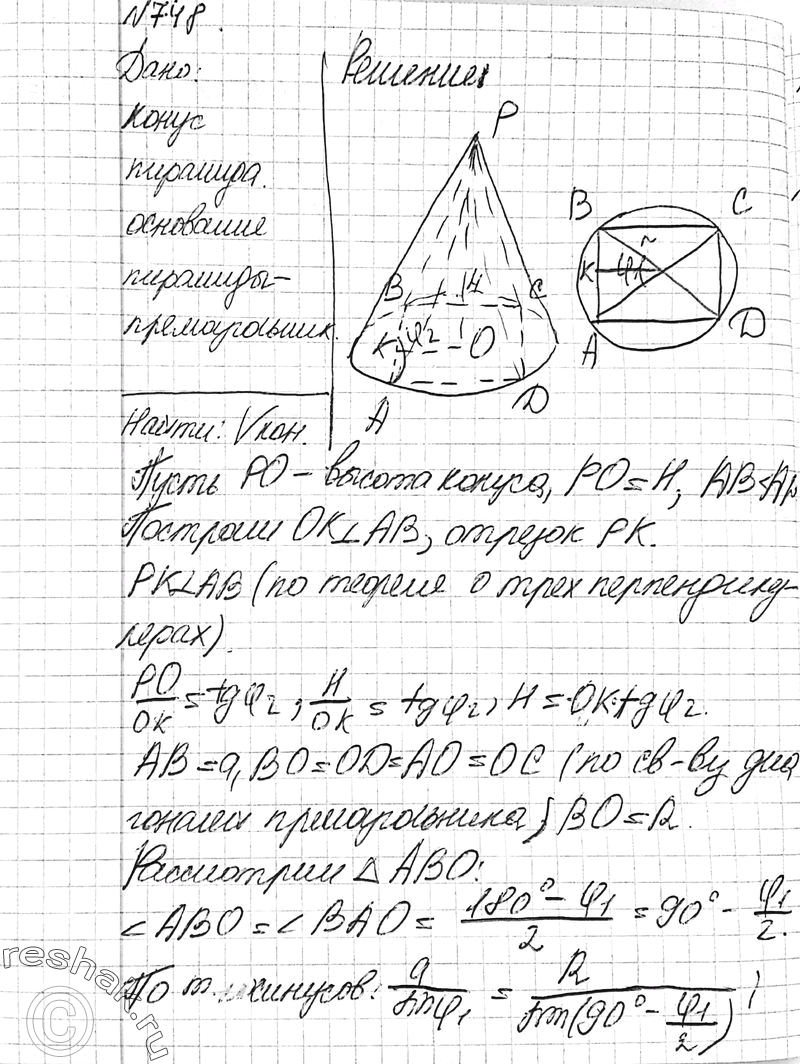 N748.
Дано:
Решение:
конус
пирамида.
основание
пирамиды-
прямоугольник.
P
B
H
C
K
φ2
O
A
D
B
C
K
φ1
A
D
Найти: Vкон.
Пусть PO - высота конуса, PO = H, AB<AD
Построим OK⊥AB, отрезок PK.
PK⊥AB (по теореме о трех перпендику-
лярах).
PO/OK = tgφ2, H/OK = tgφ2, H = OK·tgφ2.
AB = a, BO=OD=AO=OC (по св-ву диа
гоналей прямоугольника) BO = R.
Рассмотрим △ABO:
∠ABO = ∠BAO = (180° - φ1)/2 = 90° - φ1/2.
По т. синусов: a/sinφ1 = R/sin(90° - φ1/2);
reshak.ru
©